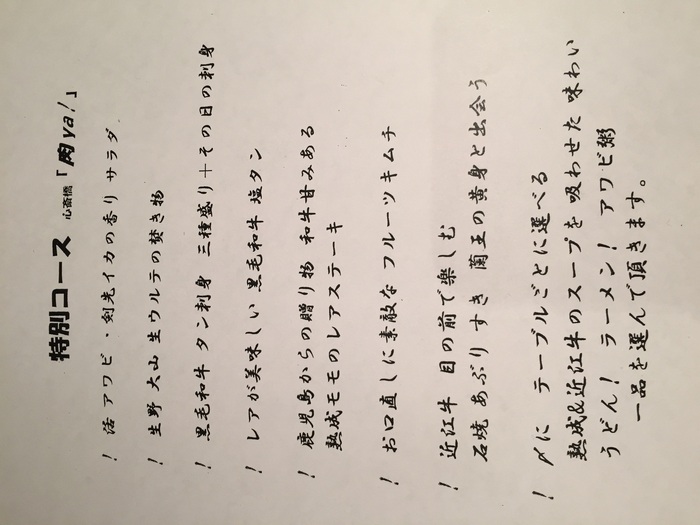 特別コース 心斎橋「肉ya!」
! 活アワビ・剣先イカの香りサラダ
! 生野大山 生ウルテの焚き物
! 黒毛和牛 タン刺身 三種盛り+その日の刺身
! レアが美味しい 黒毛和牛 塩タン
! 鹿児島からの贈り物 和牛甘みある
熟成モモのレアステーキ
! お口直しに素敵な フルーツキムチ
! 近江牛 目の前で楽しむ
石焼あぶりすき 蘭王の黄身と出会う
! 〆に テーブルごとに選べる
熟成&近江牛のスープを吸わせた 味わい
うどん! ラーメン! アワビ粥
一品を選んで頂きます。